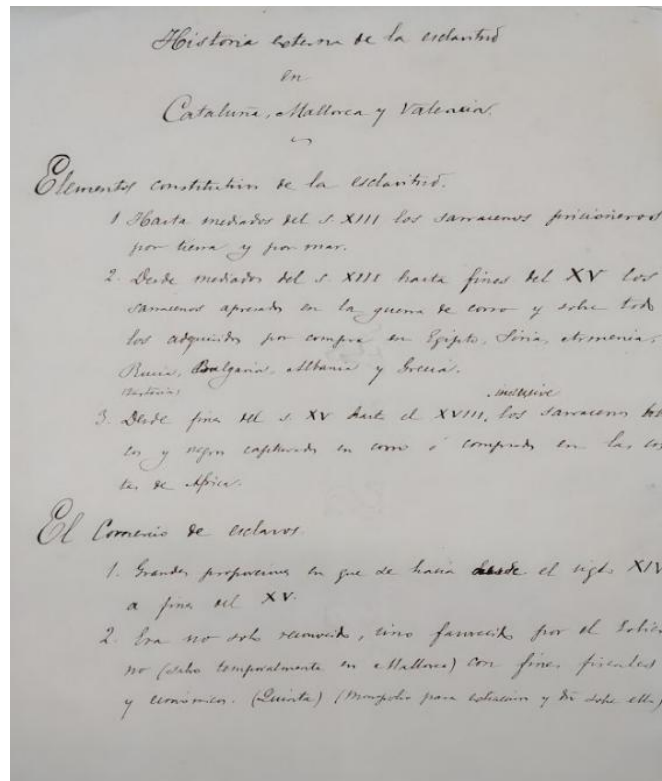 Historia externa de la esclavitud
en
Cataluña, Mallorca y Valencia.
Elementos constitutivos de la esclavitud.
1 Hasta mediados del s. XIII los sarracenos prisioneros
por tierra y por mar.
2. Desde mediados del s. XIII hasta fines del XV los
sarracenos apresados en la guerra de corso y sobre todo
los adquiridos por compra en Egipto, Siria, Armenia,
Rusia, Bulgaria, Albania y Grecia.
inclusive
3. Desde fines del s. XV hasta el XVIII, los sarracenos
y negros capturados en corso ó comprados en las cos
tas de Africa.
El Comercio de esclavos.
1. Grandes proporciones en que se hacia desde el siglo XIV
a fines del XV.
2. Era no solo reconocido, sino favorecido por el Gobier
no (salvo temporalmente en Mallorca) con fines fiscales
y económicos. (Quinta) (Monopolio para extracción y sobre ella)